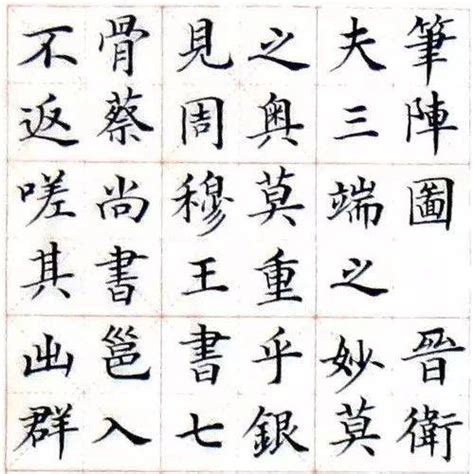 筆陣圖 晉衛
夫三端之妙莫
之奥莫重乎銀
見周穆王書七
骨蔡尚書邕入
不返嗟其出群